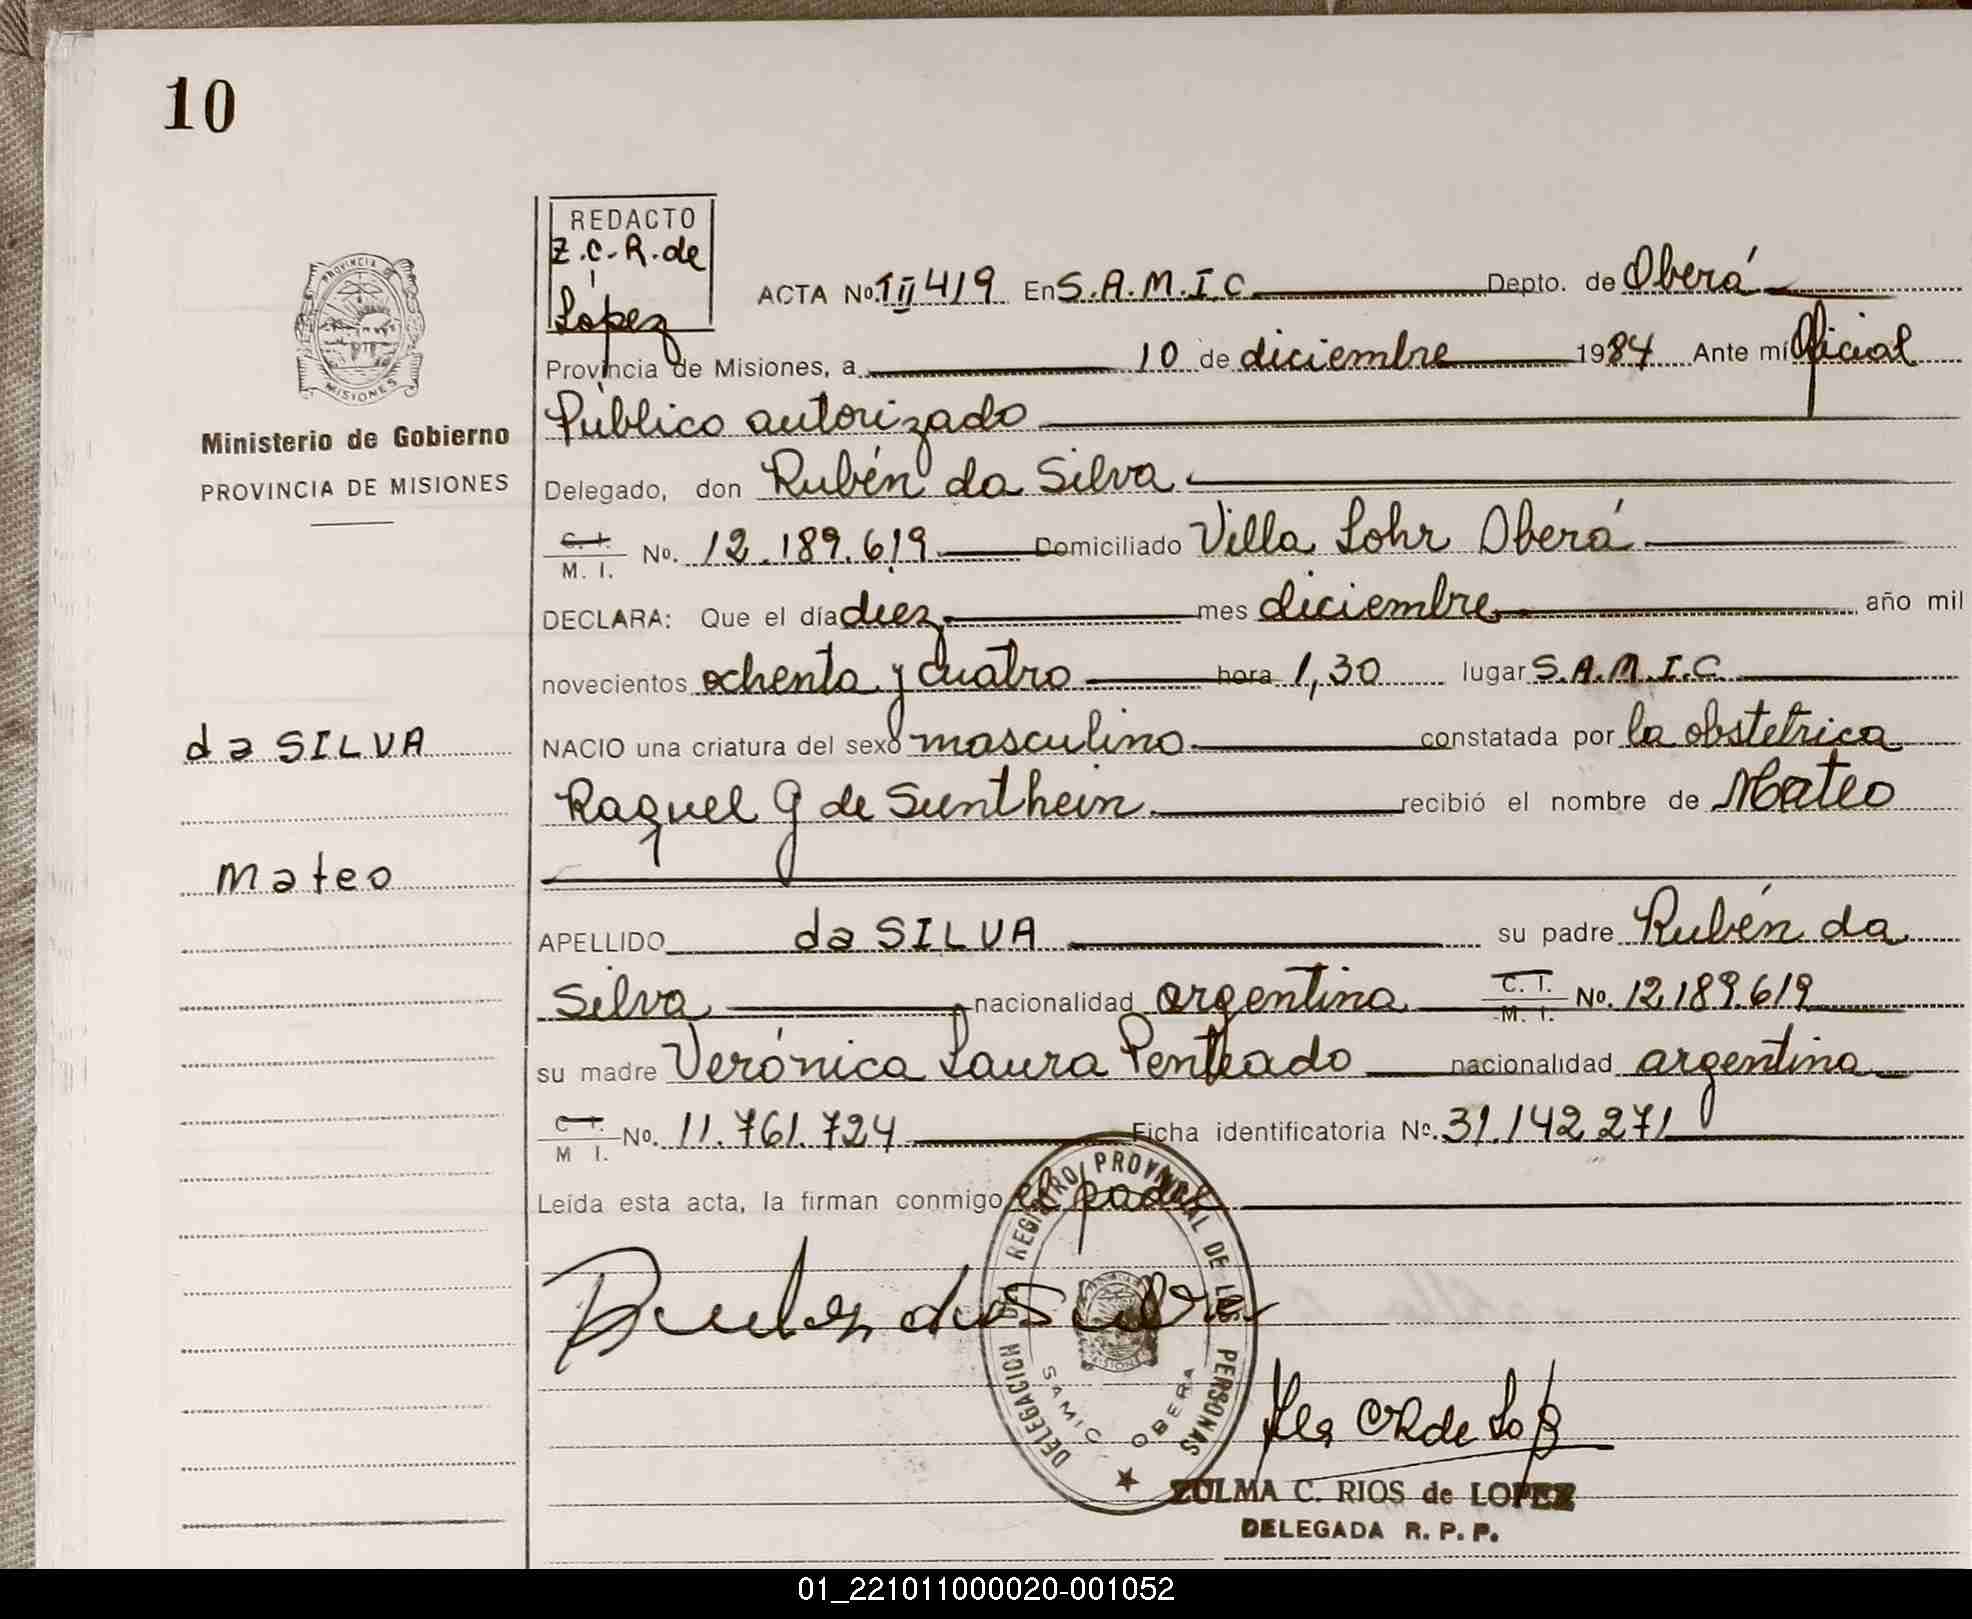 10
REDACTO
Z.C.R. de
López
PROVINCIA DE
MISIONES
Ministerio de Gobierno
PROVINCIA DE MISIONES
ACTA No. III 419 En S.A.M.I.C Depto. de Oberá
Provincia de Misiones, a 10 de diciembre 1984 Ante mí Oficial
Público autorizado
Delegado, don Rubén da Silva
C. I. / M. I. No. 12.189.619 Domiciliado Villa Lohr Oberá
DECLARA: Que el día diez mes diciembre año mil
novecientos ochenta y cuatro hora 1,30 lugar S.A.M.I.C.
da SILVA
NACIO una criatura del sexo masculino constatada por la obstetrica
Raquel G de Sunthein recibió el nombre de Mateo
Mateo
APELLIDO da SILVA su padre Rubén da
Silva nacionalidad argentina C. I. / M. I. No. 12.189.619
su madre Verónica Laura Penteado nacionalidad argentina
C I. / M I. No. 11.761.724 Ficha identificatoria No. 31.142.271
Leída esta acta, la firman conmigo el padre
Ruben da Silva
DELEGACION DE REGISTRO PROVINCIAL DE LAS PERSONAS
SAMIC OBERA
MISIONES
ZULMA C. RIOS de LOPEZ
DELEGADA R. P. P.
01_221011000020-001052